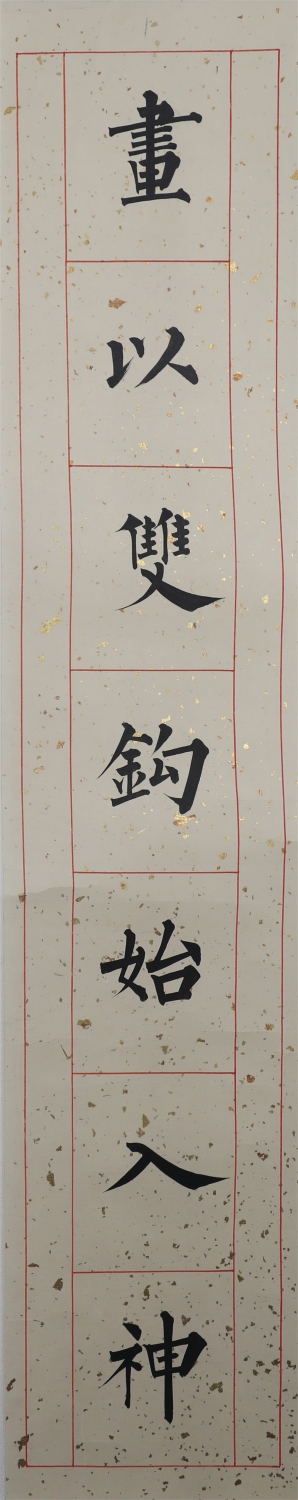 畫以雙鈎始入神